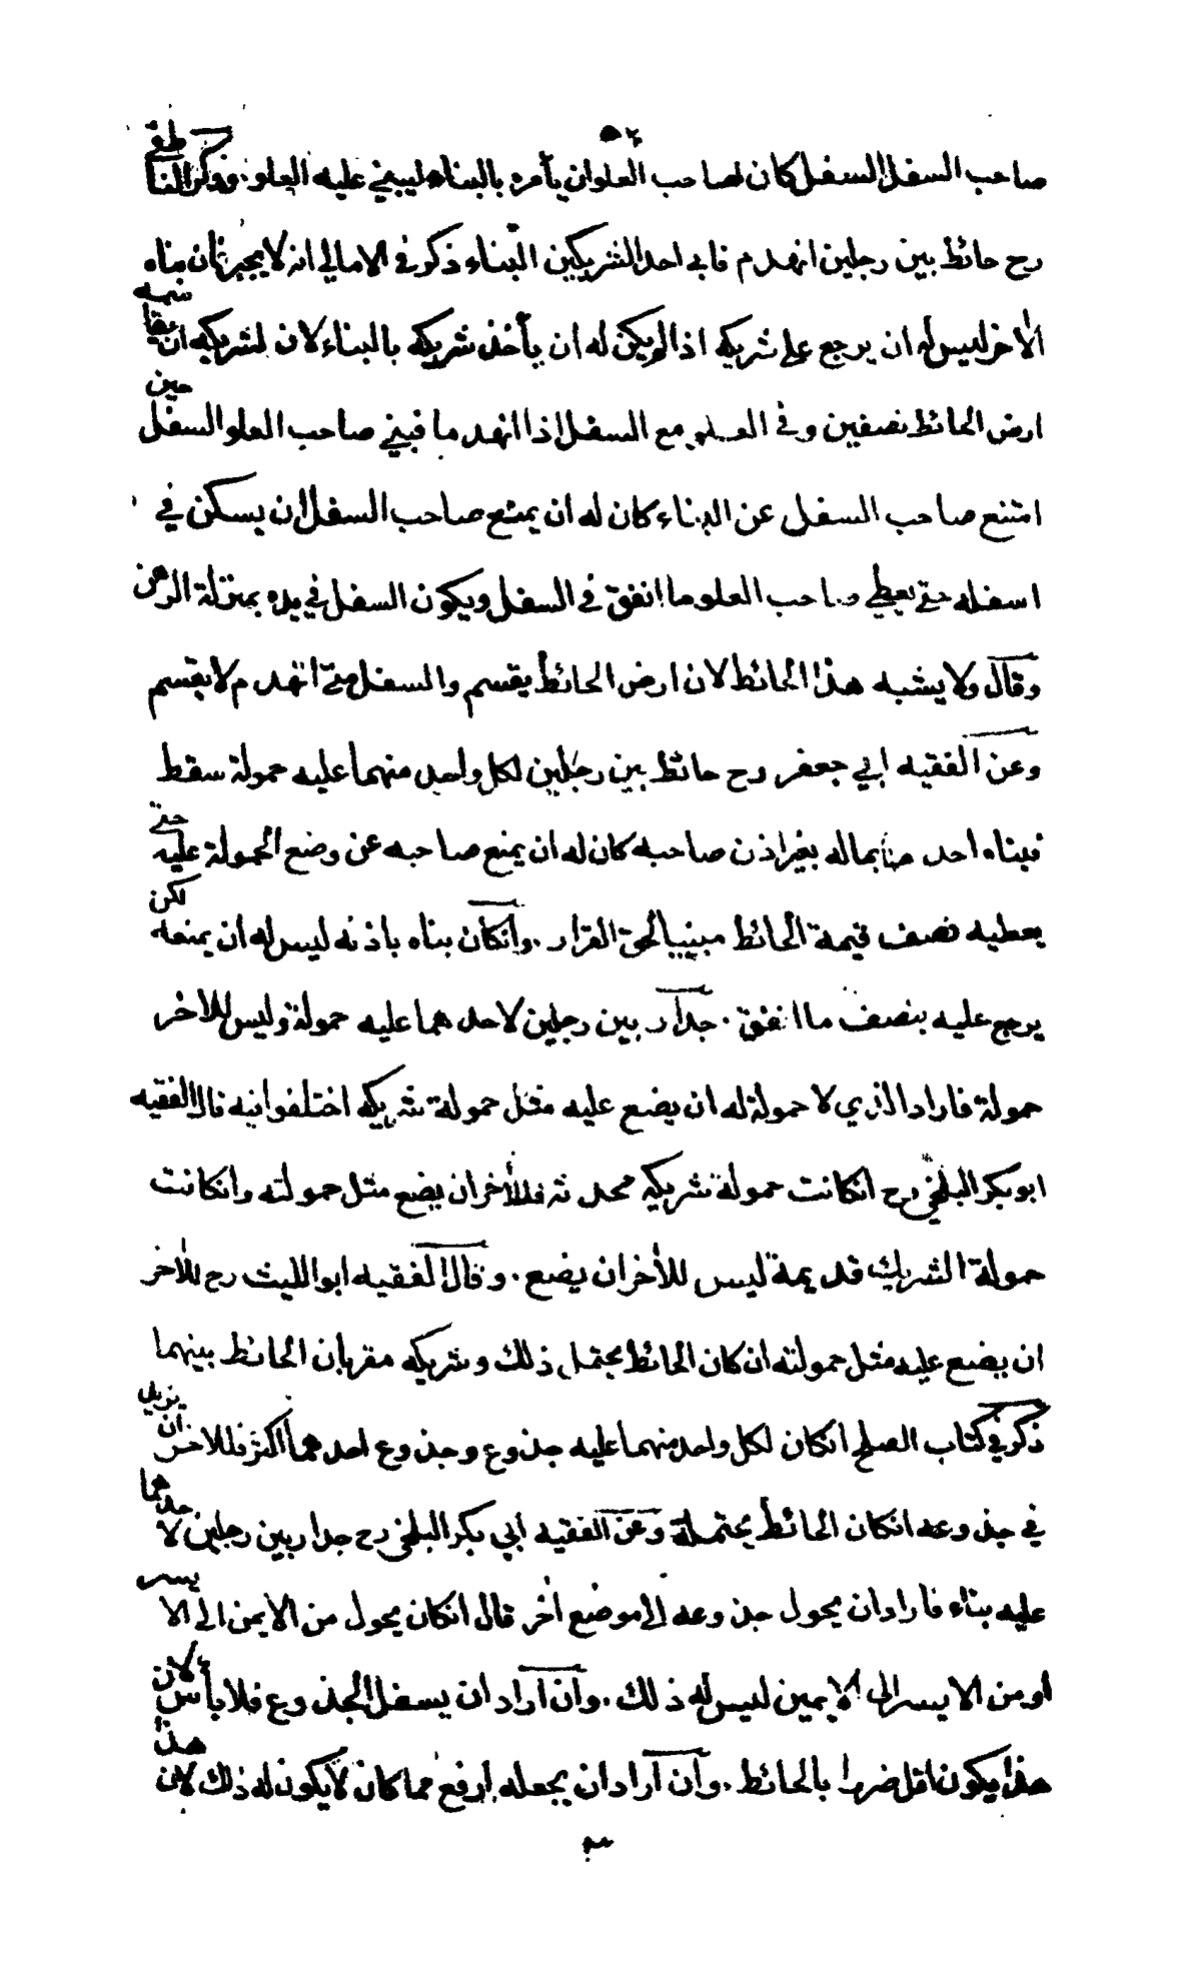 ٥٢
صاحب السفل السفل كان لصاحب العلو ان يأمره بالبناء ليبني عليه العلو . وذكر الناطفي
رح حائط بين رجلين انهدم فابى احد الشريكين البناء ذكر في الامالي انه لا يجبر فان بناه
الآخر ليس له ان يرجع على شريكه اذا لم يكن له ان يأخذ شريكه بالبناء لان لشريكه ان يقاسمه
ارض الحائط نصفين وفي العلو مع السفل اذا انهدما فبنى صاحب العلو السفل حين
امتنع صاحب السفل عن البناء كان له ان يمنع صاحب السفل ان يسكن في
اسفله حتى يعطي صاحب العلو ما انفق في السفل ويكون السفل في يده بمنزلة الرهن
وقال ولا يشبه هذا الحائط لان ارض الحائط يقسم والسفل متى انهدم لا يقسم
وعن الفقيه ابي جعفر رح حائط بين رجلين لكل واحد منهما عليه حمولة سقط
فبناه احدهما بماله بغير اذن صاحبه كان له ان يمنع صاحبه عن وضع الحمولة عليه حتى
يعطيه نصف قيمة الحائط مبنيا بحق القرار . وانكان بناه باذنه ليس له ان يمنعه لكن
يرجع عليه بنصف ما انفق . جدار بين رجلين لاحدهما عليه حمولة وليس للاخر
حمولة فاراد الذي لا حمولة له ان يضع عليه مثل حمولة شريكه اختلفوا فيه قال الفقيه
ابو بكر البلخي رح انكانت حمولة شريكه محدثة فللأخر ان يضع مثل حمولته وانكانت
حمولة الشريك قديمة ليس للأخر ان يضع . وقال الفقيه ابو الليث رح للآخر
ان يضع عليه مثل حمولته ان كان الحائط يحتمل ذلك وشريكه مقر بان الحائط بينهما
ذكر في كتاب الصلح انكان لكل واحد منهما عليه جذوع وجذوع احدهما اكثر فللاخر ان يزيد
في جذوعه انكان الحائط يحتمله وعن الفقيه ابي بكر البلخي رح جدار بين رجلين لاحدهما
عليه بناء فاراد ان يحول جذوعه الى موضع أخر قال انكان يحول من الايمن الى الايسر
او من الايسر الى الايمن ليس له ذلك . وان اراد ان يسفل الجذوع فلا بأس لان
هذا يكون اقل ضررا بالحائط . وان اراد ان يجعله ارفع مما كان لا يكون له ذلك لان هذا